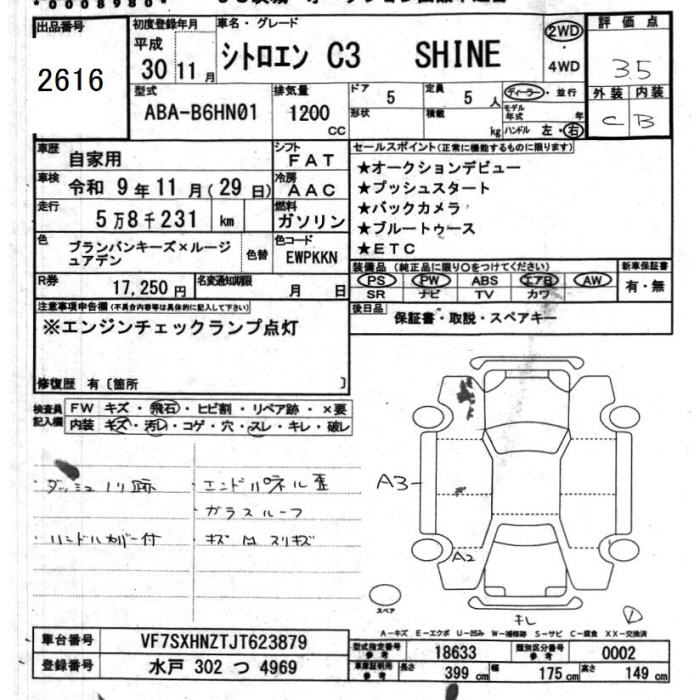 *0008980*
出品番号
2616
初度登録年月
平成
30 11月
車名・グレード
シトロエン C3 SHINE
2WD
・
4WD
評価点
3.5
外装 内装
C B
型式
ABA-B6HN01
排気量
1200
CC
ドア
5
定員
5人
形状
積載
kg
ディーラー・並行
モデル年式 年
ハンドル 左・右
車歴
自家用
シフト
FAT
車検
令和 9年11月(29日)
冷房
AAC
走行
5万8千231 km
燃料
ガソリン
色
ブランバンキーズ×ルージュアデン
色替
色コード
EWPKKN
R券
17,250円
名変通知期限
月 日
セールスポイント(正常に機能するものに限ります)
★オークションデビュー
★プッシュスタート
★バックカメラ
★ブルートゥース
★ETC
装備品(純正品に限り○をつけてください)
新車保証書
PS PW ABS エアB AW
SR ナビ TV カワ
有・無
後日品
保証書・取説・スペアキー
注意事項申告欄(不具合内容等は具体的に記入して下さい)
※エンジンチェックランプ点灯
修復歴 有〔箇所 〕
検査員記入欄
FW キズ・飛石・ヒビ割・リペア跡・×要
内装 キズ・汚レ・コゲ・穴・スレ・キレ・破レ
ダッシュノリ跡
・エンドパネル歪
ガラスルーフ
・ハンドルカバー付
・キズ凹スリキズ
A3
A2
キレ
スペア
A-キズ E-エクボ U-凹み W-補修跡 S-サビ C-腐食 XX-交換済
車台番号
VF7SXHNZTJT623879
登録番号
水戸 302 つ 4969
型式指定番号
参考
18633
類別区分番号
参考
0002
車庫証明用
参考
長さ
399 cm
幅
175 cm
高さ
149 cm